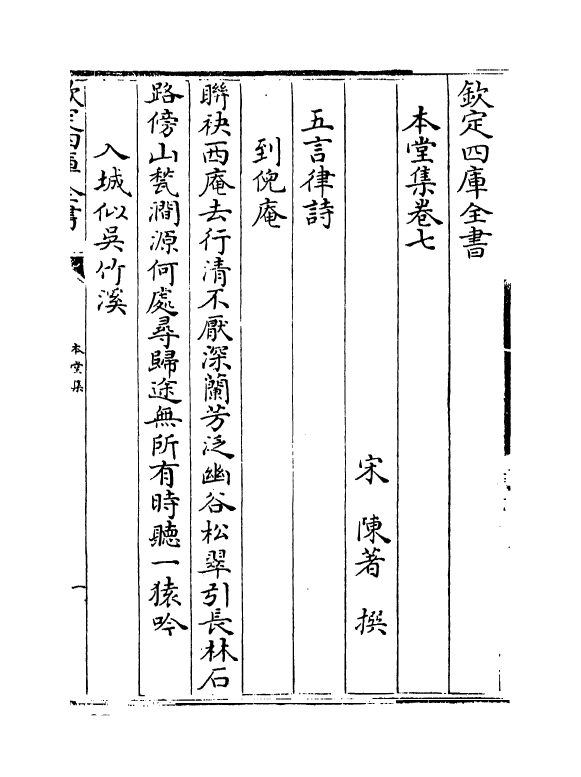 欽定四庫全書
本堂集卷七
宋 陳著 撰
五言律詩
到倪庵
聯袂西庵去行清不厭深蘭芳泛幽谷松翠引長林石
路傍山甃澗源何處尋歸途無所有時聽一猿吟
入城似吳竹溪
欽定四庫全書
本堂集
一